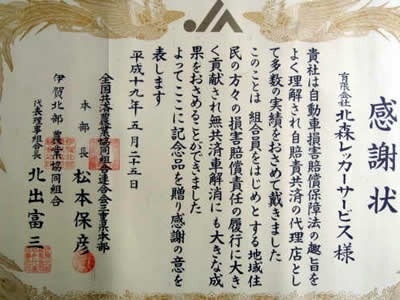 感謝状
有限会社 北森レッカーサービス 様
貴社は自動車損害賠償保障法の趣旨を
よく理解され自賠責共済の代理店とし
て多数の実績をおさめて戴きました
このことは 組合員をはじめとする地域住
民の方々の損害賠償責任の履行に大き
く貢献され無共済車解消にも大きな成
果をおさめることができました
よってここに記念品を贈り感謝の意を
表します
平成十九年 五月二十五日
全国共済農業協同組合連合会三重県本部
本部長 松本保彦
伊賀北部農業協同組合
代表理事組合長 北出富三